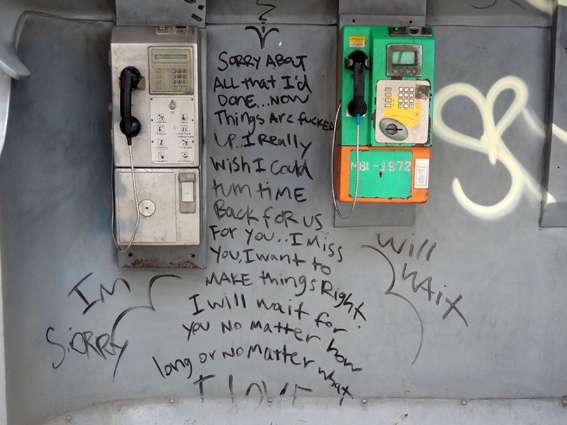 SORRY ABOUT
ALL that I'd
DONE...NOW
Things ARE fucked
UP. I Really
wish I could
turn time
Back for us
For you.. I miss
You, I want to
MAKE things Right
I will wait for
you No matter how
long or No Matter what
I LOVE
I'm
SORRY
Will
WAIT
MB1-1972